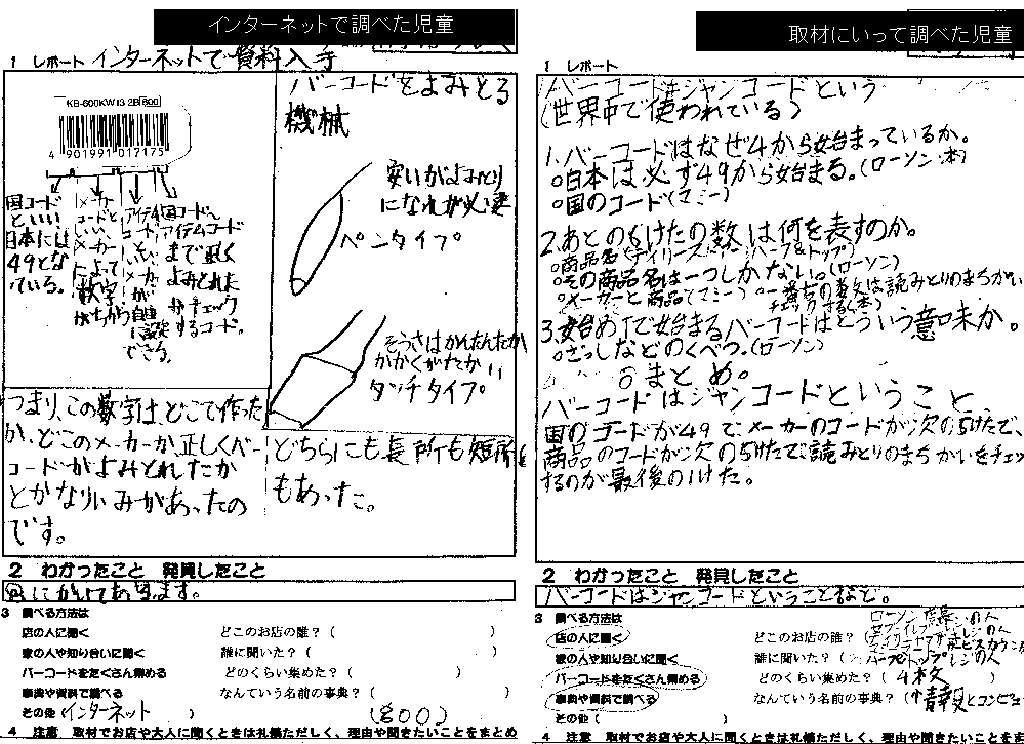 インターネットで調べた児童
1 レポート インターネットで資料入手
KB-600KW13 2B 600
4 901991 017175
国コード
といい
日本には
49とな
ている。
メーカー
コードと
いい
メーカー
によって
数字
がちがう
アイテム
コード
といい
メーカー
が
自由
に設定
できる。
国コード〜
アイテムコード
まで正しく
よみとれた
かチェック
するコード。
バーコードをよみとる
機械
安いがよみとり
になれが必要
ペンタイプ
そうさはかんたんだが
かかくがたかい
タッチタイプ
つまり、この数字は、どこで作った
か、どこのメーカーか、正しくバー
コードがよみとれたか
とかなりいみがあったの
です。
どちらにも長所も短所も
もあった。
2 わかったこと 発見したこと
にかいてあります。
3 調べる方法は
店の人に聞く どこのお店の誰?( )
家の人や知り合いに聞く 誰に聞いた?( )
バーコードをたくさん集める どのくらい集めた?( )
事典や資料で調べる なんていう名前の事典?( )
その他(インターネット ) (800)
4 注意 取材でお店や大人に聞くときは礼儀ただしく、理由や聞きたいことをまとめ
取材にいって調べた児童
1 レポート
バーコード=ジャンコードという
(世界中で使われている)
1.バーコードはなぜ4から始まっているか。
○日本は必ず49から始まる。(ローソン・本)
○国のコード(マミー)
2.あとの5けたの数は何を表すのか。
○商品名(デイリーストアー・ハーフ&トップ)
○その商品名は一つしかない。(ローソン)
○メーカーと商品(マミー) ○一番右の数は読みとりのまちがい
チェックする(本)
3.始め1で始まるバーコードはどういう意味か。
○ざっしなどのくべつ。(ローソン)
○まとめ。
バーコードはジャンコードということ、
国のコードが49で、メーカーのコードが次の5けたで、
商品のコードが次の5けたで、読みとりのまちがいをチェッ
するのが最後の1けた。
2 わかったこと 発見したこと
バーコードはジャンコードということなど。
3 調べる方法は
店の人に聞く どこのお店の誰?(
ローソン店長
家の人や知り合いに聞く 誰に聞いた?(
バーコードをたくさん集める どのくらい集めた?(4本
事典や資料で調べる なんていう名前の事典?(
その他(
4 注意 取材でお店や大人に聞くときは礼儀ただしく、理由や聞きたいことをま